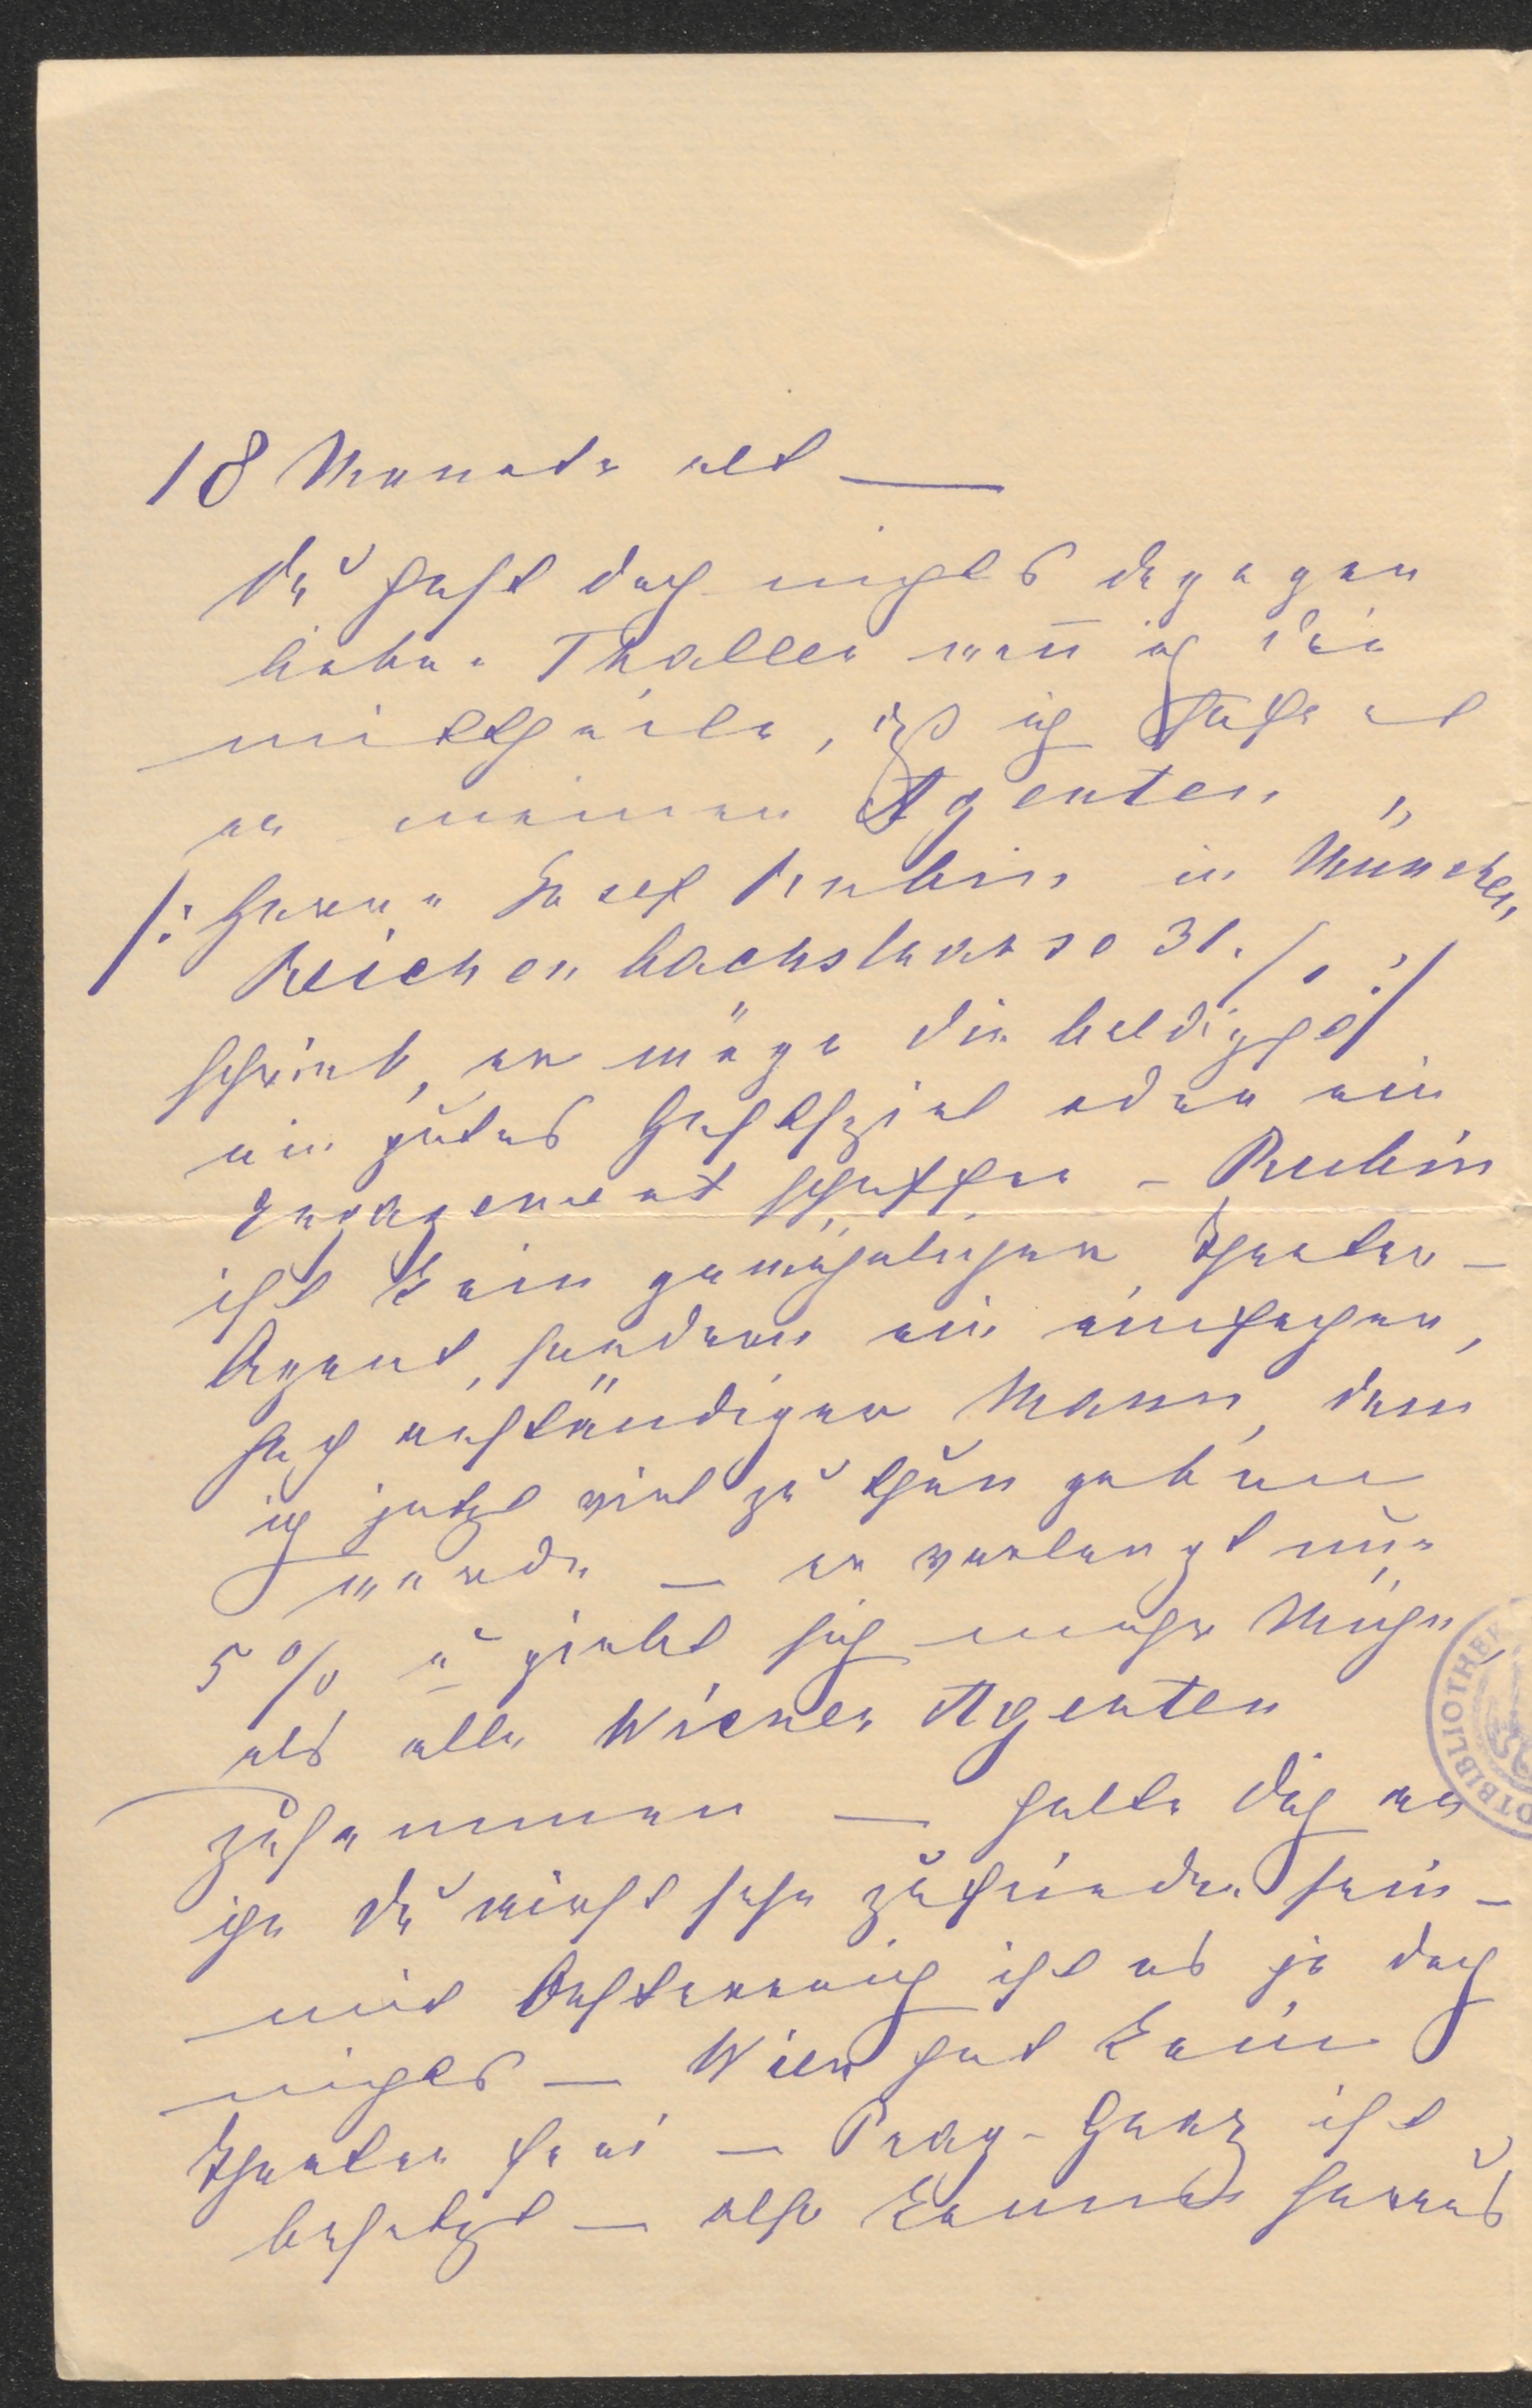 18 Monate alt —
Du hast doch nichts dagegen
lieber Thaller wenn̄ ich Dir
mittheile, daß ich sofort
an meinen Agenten
/: Herrn Josef Rubin in München,
Reichenbachstrasse 31./1. :/
schrieb, er möge Dir baldigst
ein gutes Gastspiel oder ein
Engagement schaffen – Rubin
ist kein gewöhnlicher Theater-
Agent, sondern ein einfacher,
hoch anständiger Mann, dem
ich jetzt viel zu thun geben
werde — er verlangt nur
5 % u giebt sich mehr Mühe,
als alle Wiener Agenten
zusammen — halte Dich an
ihn Du wirst sehr zufrieden sein –
mit Oesterreich ist es ja doch
nichts — Wien hat kein
Theater frei — Prag – Graz ist
besetzt — also komme heraus
BIBLIOTHE